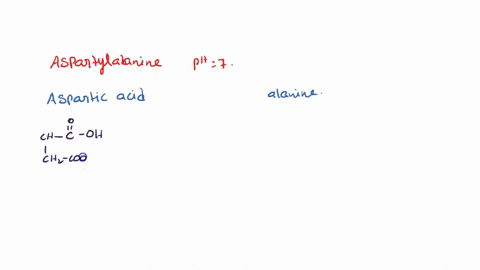 Aspartylalanine pH=7.
Aspartic acid alanine.
O
CH-C-OH
CH2-COO⊖